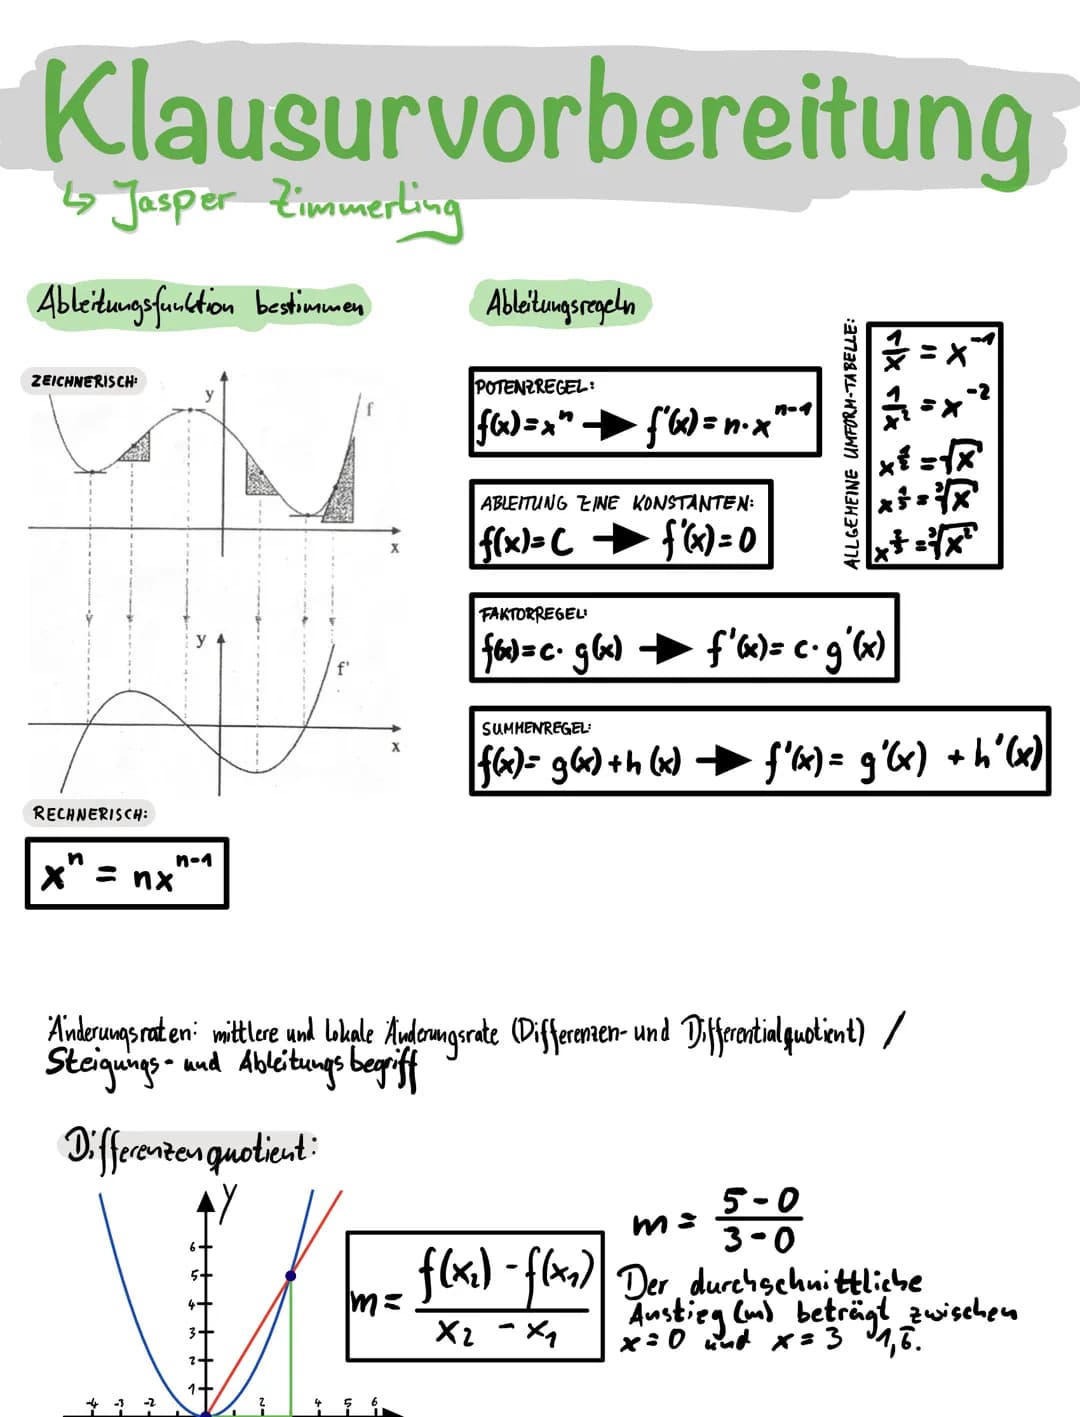 Klausurvorbereitung
↳ Jasper Zimmerling
Ableitungsfunktion bestimmen
ZEICHNERISCH:
y
f
x
y
f'
x
RECHNERISCH:
xⁿ = nxⁿ⁻¹
Ableitungsregeln
POTENZREGEL:
f(x)=xⁿ → f'(x)=n·xⁿ⁻¹
ABLEITUNG EINE KONSTANTEN:
f(x)=C → f'(x)=0
FAKTORREGEL:
f(x)=c·g(x) → f'(x)=c·g'(x)
SUMMENREGEL:
f(x)=g(x)+h(x) → f'(x)=g'(x)+h'(x)
ALLGEMEINE UMFORM-TABELLE:
1/x = x⁻¹
1/x² = x⁻²
Änderungsraten: mittlere und lokale Änderungsrate (Differenzen- und Differentialquotient) /
Steigungs- und Ableitungsbegriff
Differenzenquotient:
y
6
5
4
3
2
1
-4 -3 -2 2 4 5 6
m = (f(x₂) - f(x₁)) / (x₂ - x₁)
m = (5-0) / (3-0)
Der durchschnittliche
Anstieg (m) beträgt zwischen
x=0 und x=3 1,6.